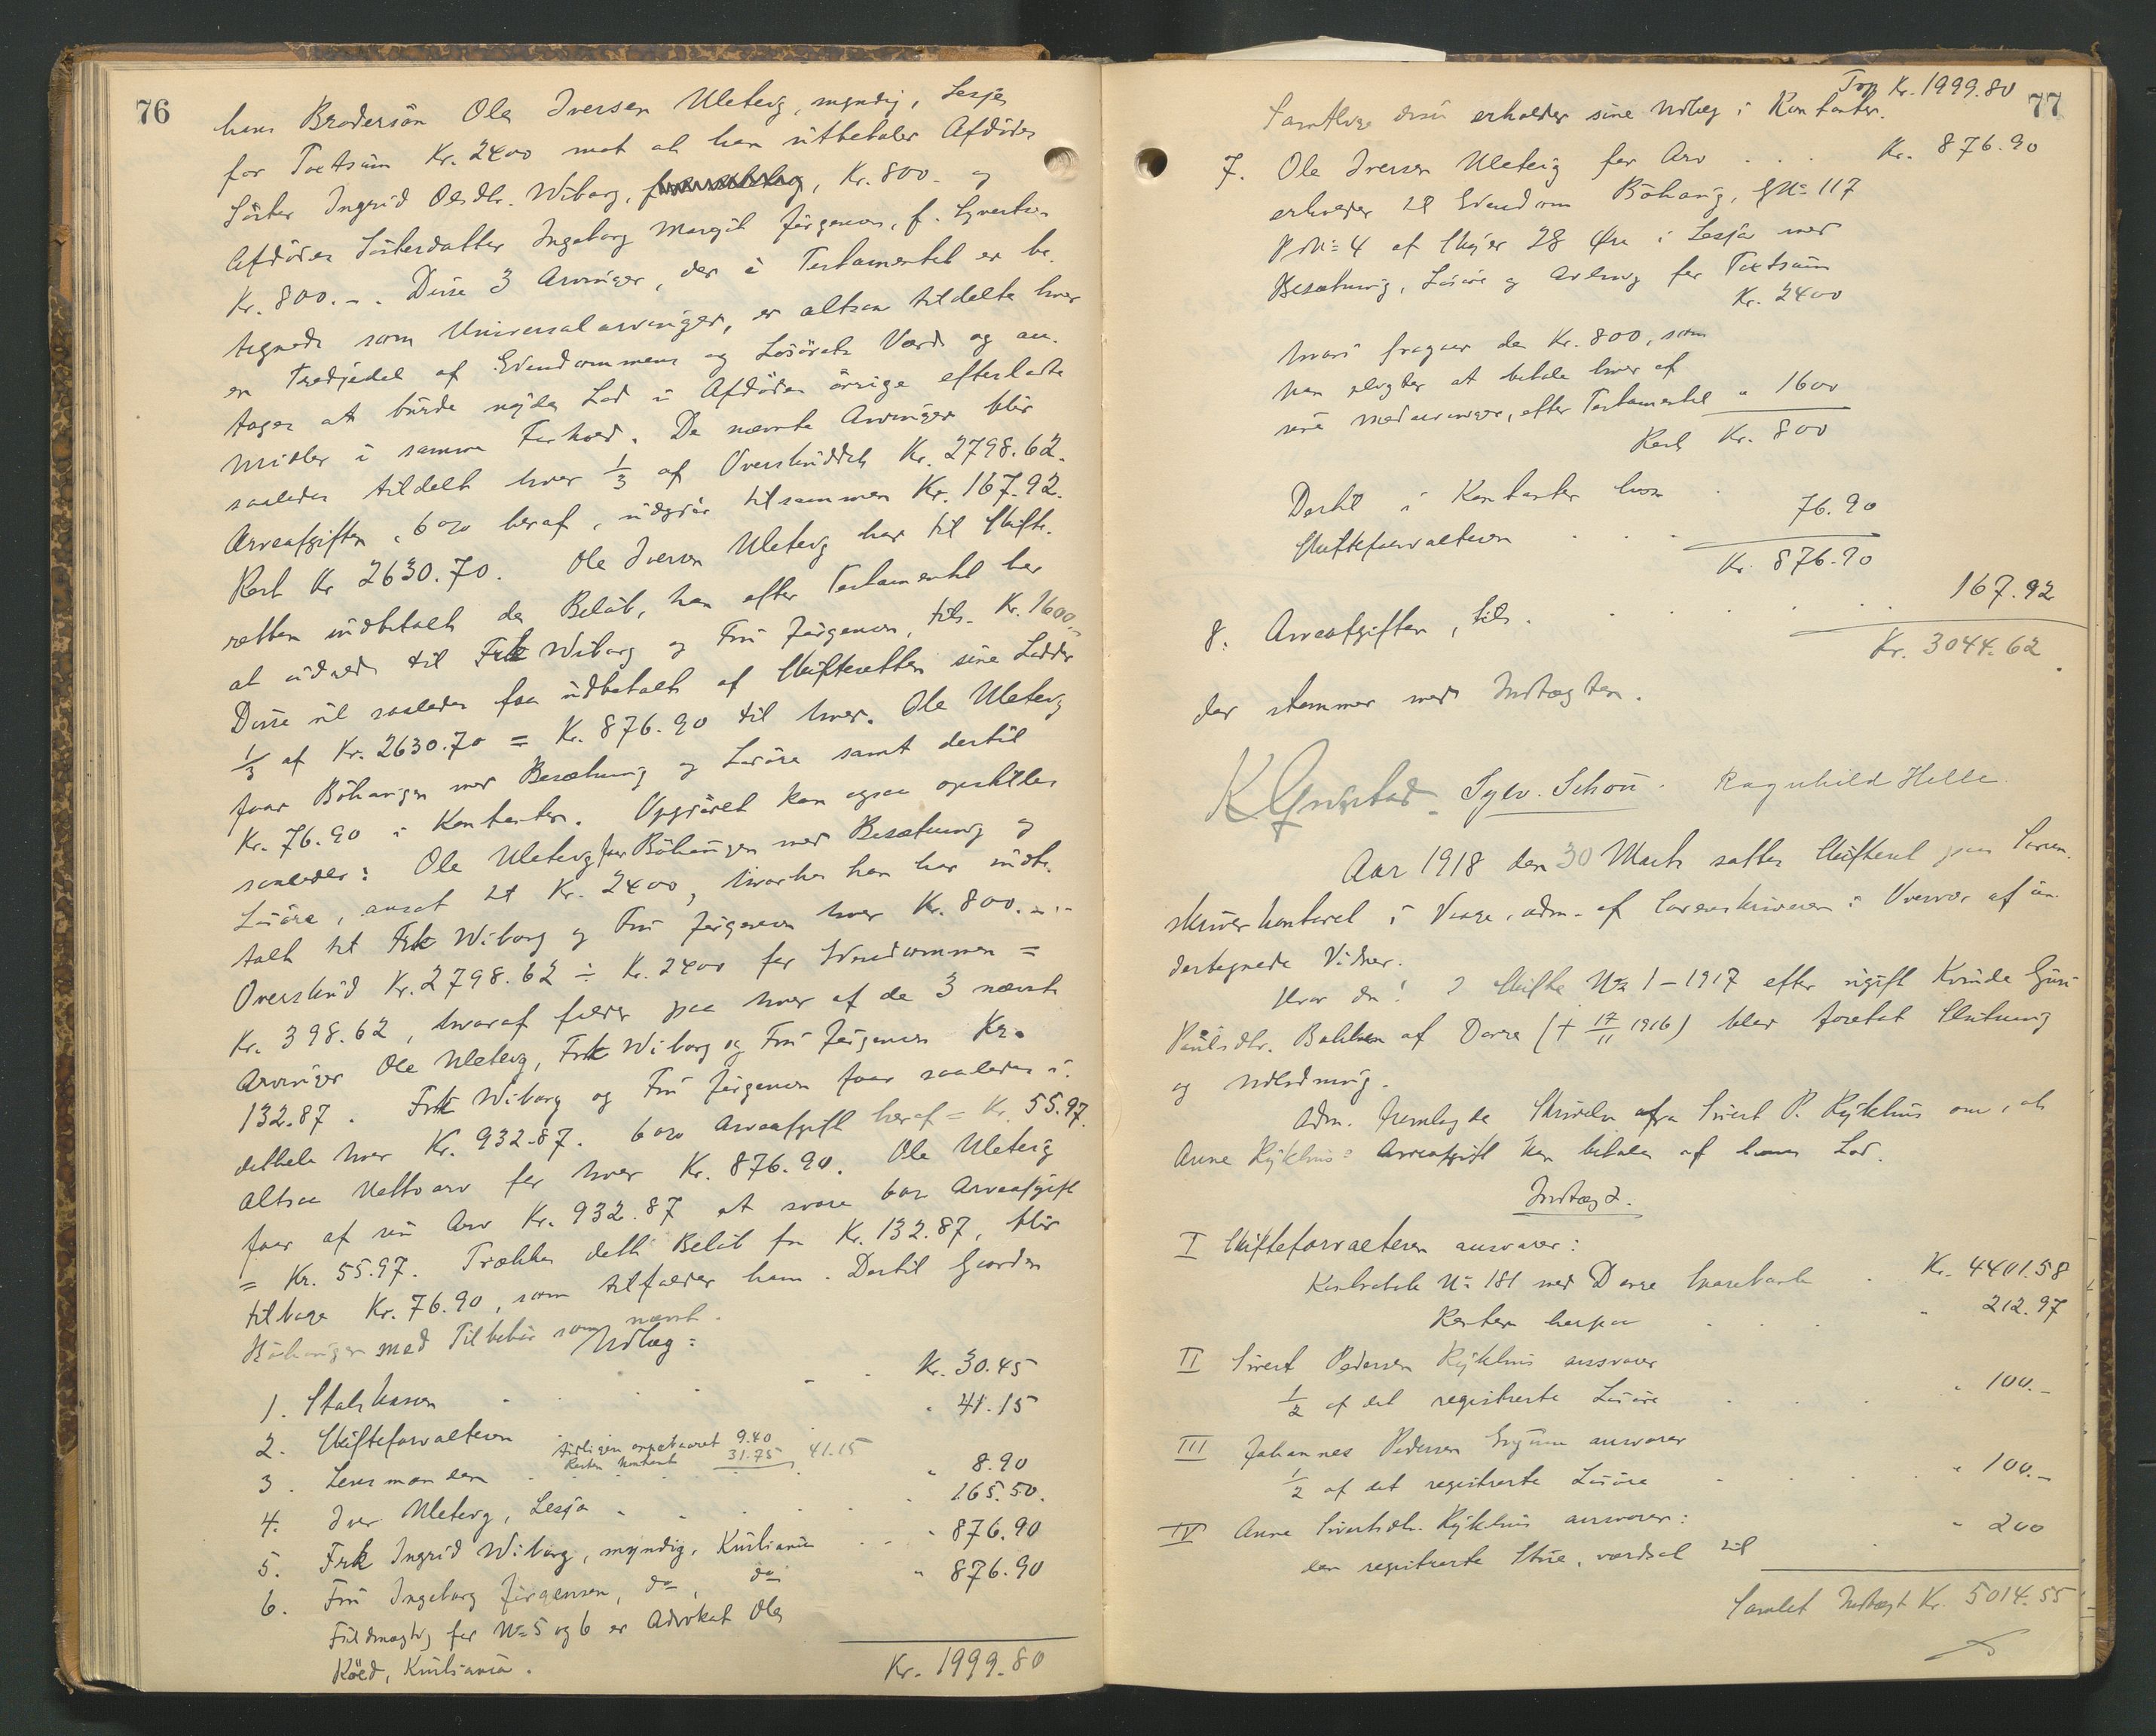 76
hans Brodersön Ole Iversen Uleteig, myndig, Lesje,
for Taxtsum Kr. 2400 mot at han utbetaler Afdödes
Söster Ingrid Olsdtr. Wiborg, Kr. 800.- og
Afdödes Sösterdatter Ingeborg Margit Jörgensen, f. Syvertsen
Kr. 800.-. Disse 3 Arvinger, der i Testamentet er be-
tegnede som Universalarvinger, er altsaa tildelte hver
en Trediedel af Eiendommens og Lösörets Værd og an-
tages at burde nyde Lod i Afdödes övrige efterladte
Midler i samme Forhold. De nævnte Arvinger blir
saaledes tildelt hver 1/3 af Overskuddet Kr. 2798.62.
Arveafgiften, 6 % heraf, udgjör tilsammen Kr. 167.92.
Rest Kr 2630.70. Ole Iversen Uleteig har til Skifte-
retten indbetalt de Belöb, han efter Testamentet har
at udrede til Frk Wiborg og Fru Jörgensen, tils. Kr. 1600.-
Disse vil saaledes faa udbetalt af Skifteretten sine Lodder
1/3 af Kr. 2630.70 = Kr. 876.90 til hver. Ole Uleteig
faar Böhaugen med Besætning og Lösöre samt dertil
Kr. 76.90 i Kontanter. Opgjöret kan ogsaa opstilles
saaledes: Ole Uleteig faar Böhaugen med Besætning og
Lösöre, ansat til Kr. 2400, hvorhos han har indbe-
talt til Frk Wiborg og Fru Jörgensen hver Kr. 800.-.-
Overskud Kr. 2798.62 ÷ Kr. 2400 for Eiendommen =
Kr. 398.62, hvoraf falder paa hver af de 3 nævnte
Arvinger Ole Uleteig, Frk Wiborg og Fru Jörgensen Kr.
132.87. Frk Wiborg og Fru Jörgensen faar saaledes i
dethele hver Kr. 932.87. 6 % Arveafgift heraf = Kr. 55.97.
altsaa Nettoarv for hver Kr. 876.90. Ole Uleteig
faar af sin Arv Kr. 932.87 at svare 6 % Arveafgift
= Kr. 55.97. Trækkes dette Belöb fra Kr. 132.87, blir
tilbage Kr. 76.90, som tilfalder ham. Dertil Gaarden
Böhaugen med Tilbehör som nævnt.
Udlæg:
1. Statskassen Kr. 30.45
2. Skifteforvalteren " 41.15
tidligere oppebaaret 9.40
Resten kontant 31.75 41.15
3. Lensmanden " 8.90
4. Iver Uleteig, Lesja " 165.50.
5. Frk Ingrid Wiborg, myndig, Kristiania " 876.90
6. Fru Ingeborg Jörgensen, do, do " 876.90
Fuldmægtig for No 5 og 6 er Advokat Ole
Röed, Kristiania.
Kr. 1999.80
77
Trp Kr. 1999.80
Samtlige disse erholder sine Udlæg i Kontanter.
7. Ole Iversen Uleteig for Arv . . . Kr. 876.90
erholder til Eiendom Böhaug, GNo 117
BNo 4 af Skyld 28 Öre i Lesja med
Besætning, Lösöre og Avling for Taxtsum
Kr. 2400
hvori fragaar de Kr. 800, som
han plegter at betale hver af
sine Medarvinger, efter Testamentet " 1600
Rest Kr. 800
Dertil i Kontanter hos
Skifteforvalteren . . . 76.90
Kr. 876.90
8. Arveafgiften, tils. . . . 167.92
Kr. 3044.62
der stemmer med Indtægten.
Sylv. Schou. Ragnhild Helle.
Aar 1918 den 30 Marts sattes Skifteret paa Soren-
skriverkontoret i Vaage, adm. af Sorenskriveren i Overvær af un-
dertegnede Vidner.
Hvor da: I Skifte No 1 - 1917 efter ugift Kvinde Guri
Paulsdtr. Bakken af Dovre († 17/11 1916) blev foretat Slutning
og Udlodning.
Adm. fremlagde Skrivelse fra Sivert P. Rykhus om, at
Anne Rykhus's Arveafgift kan betales af hans Lod.
Indtægt.
I Skifteforvalteren ansvarer:
Kontrabok No 181 med Dovre Sparebank . Kr. 4401.58
Renten herpaa . . . " 212.97
II Sivert Pedersen Rykhus ansvarer
1/2 af det registrerte Lösöre . . . " 100.-
III Johannes Pedersen ansvarer
1/2 af det registrerte Lösöre . . . " 100.-
IV Anne Sivertsdtr. Rykhus ansvarer:
den registrerte Stue, værdsat til . " 200
Samlet Indtægt Kr. 5014.55